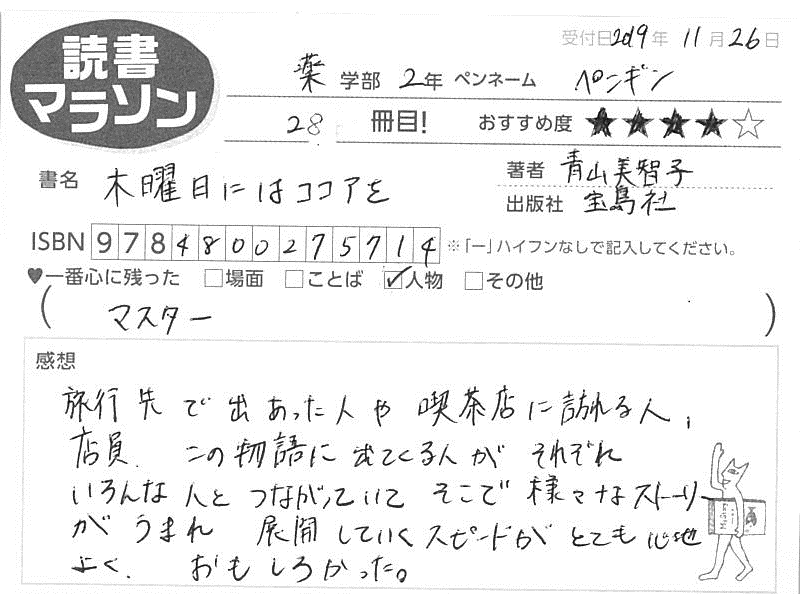 読書
マラソン
受付日 2019年 11月26日
薬 学部 2年 ペンネーム ペンギン
28 冊目! おすすめ度 ★★★★☆
書名 木曜日にはココアを
著者 青山美智子
出版社 宝島社
ISBN 9784800275714 ※「ー」ハイフンなしで記入してください。
♥一番心に残った □場面 □ことば ☑人物 □その他
( マスター )
感想
旅行先で出あった人や喫茶店に訪れる人、
店員、この物語に出てくる人がそれぞれ
いろんな人とつながっていてそこで様々なストーリー
がうまれ 展開していくスピードがとても心地
よく、おもしろかった。